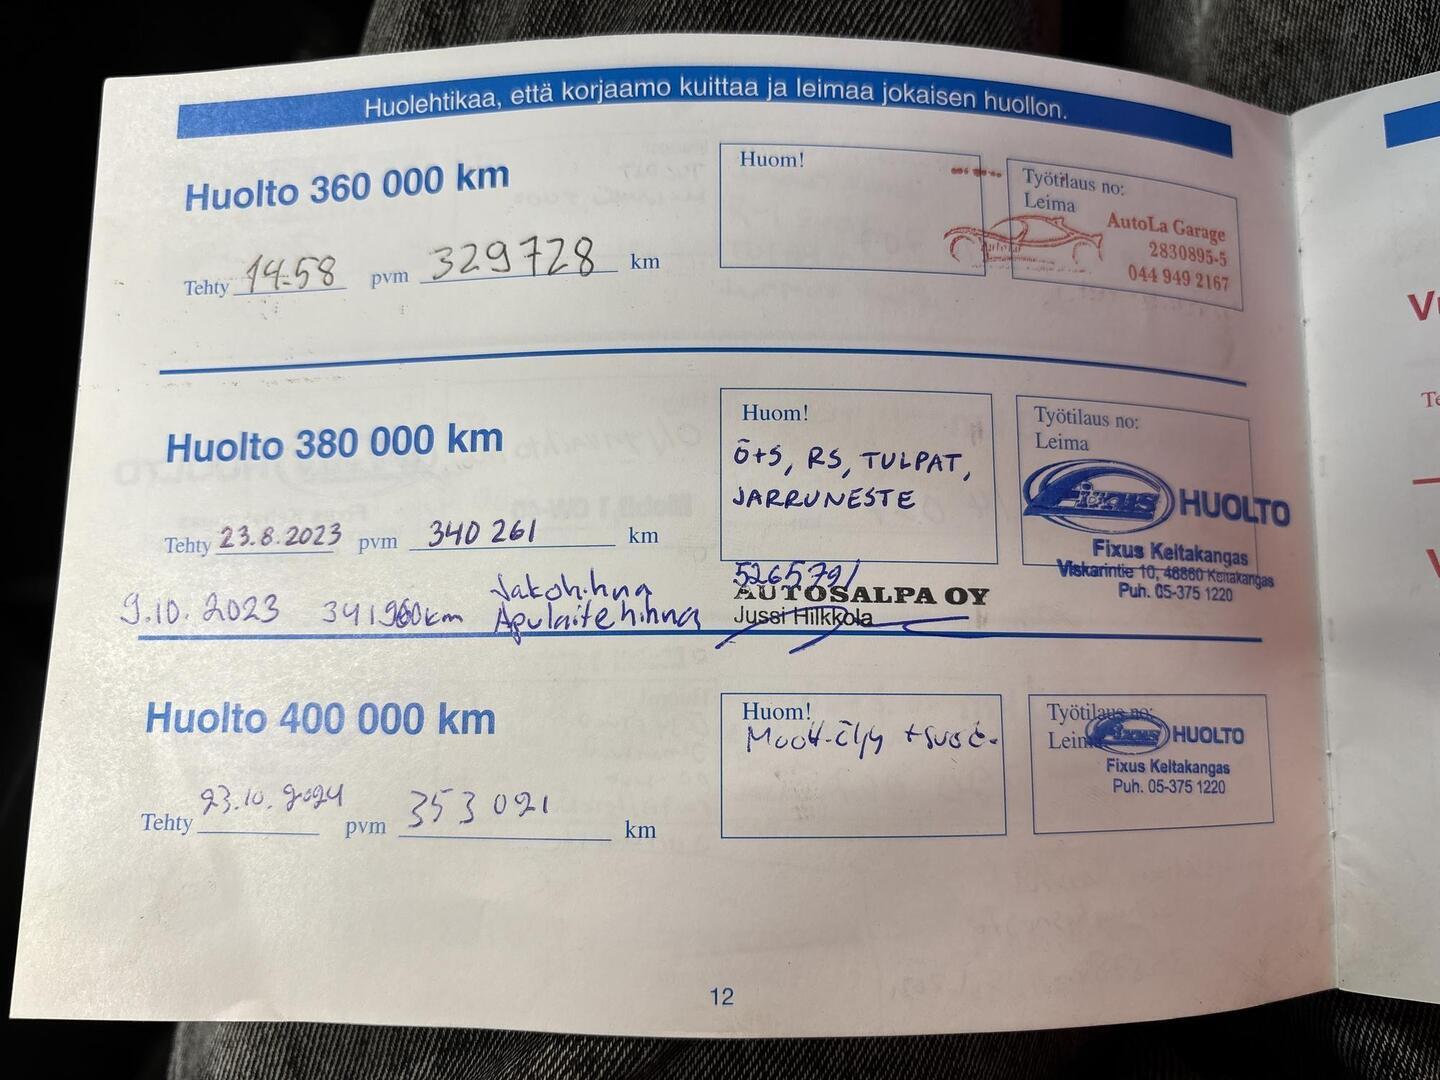 Huolehtikaa, että korjaamo kuittaa ja leimaa jokaisen huollon.
Huolto 360 000 km
Tehty 14:58 pvm 329728 km
Huom!
Työtilaus no:
Leima
AutoLa Garage
2830895-5
044 949 2167
Huolto 380 000 km
Tehty 23.8.2023 pvm 340 261 km
Huom!
Ö+S, RS, TULPAT,
JARRUNESTE
Työtilaus no:
Leima
Fixus HUOLTO
Fixus Keltakangas
Viskarintie 10, 46860 Keltakangas
Puh. 05-375 1220
9.10.2023 km Jakohihna
Apulaitehihna
5265791
AUTOSALPA OY
Jussi Hilkkola
Huolto 400 000 km
Tehty 23.10.2024 pvm 353 021 km
Huom!
Moott-öljy +suod.
Työtilaus no:
Leima
Fixus HUOLTO
Fixus Keltakangas
Puh. 05-375 1220
12